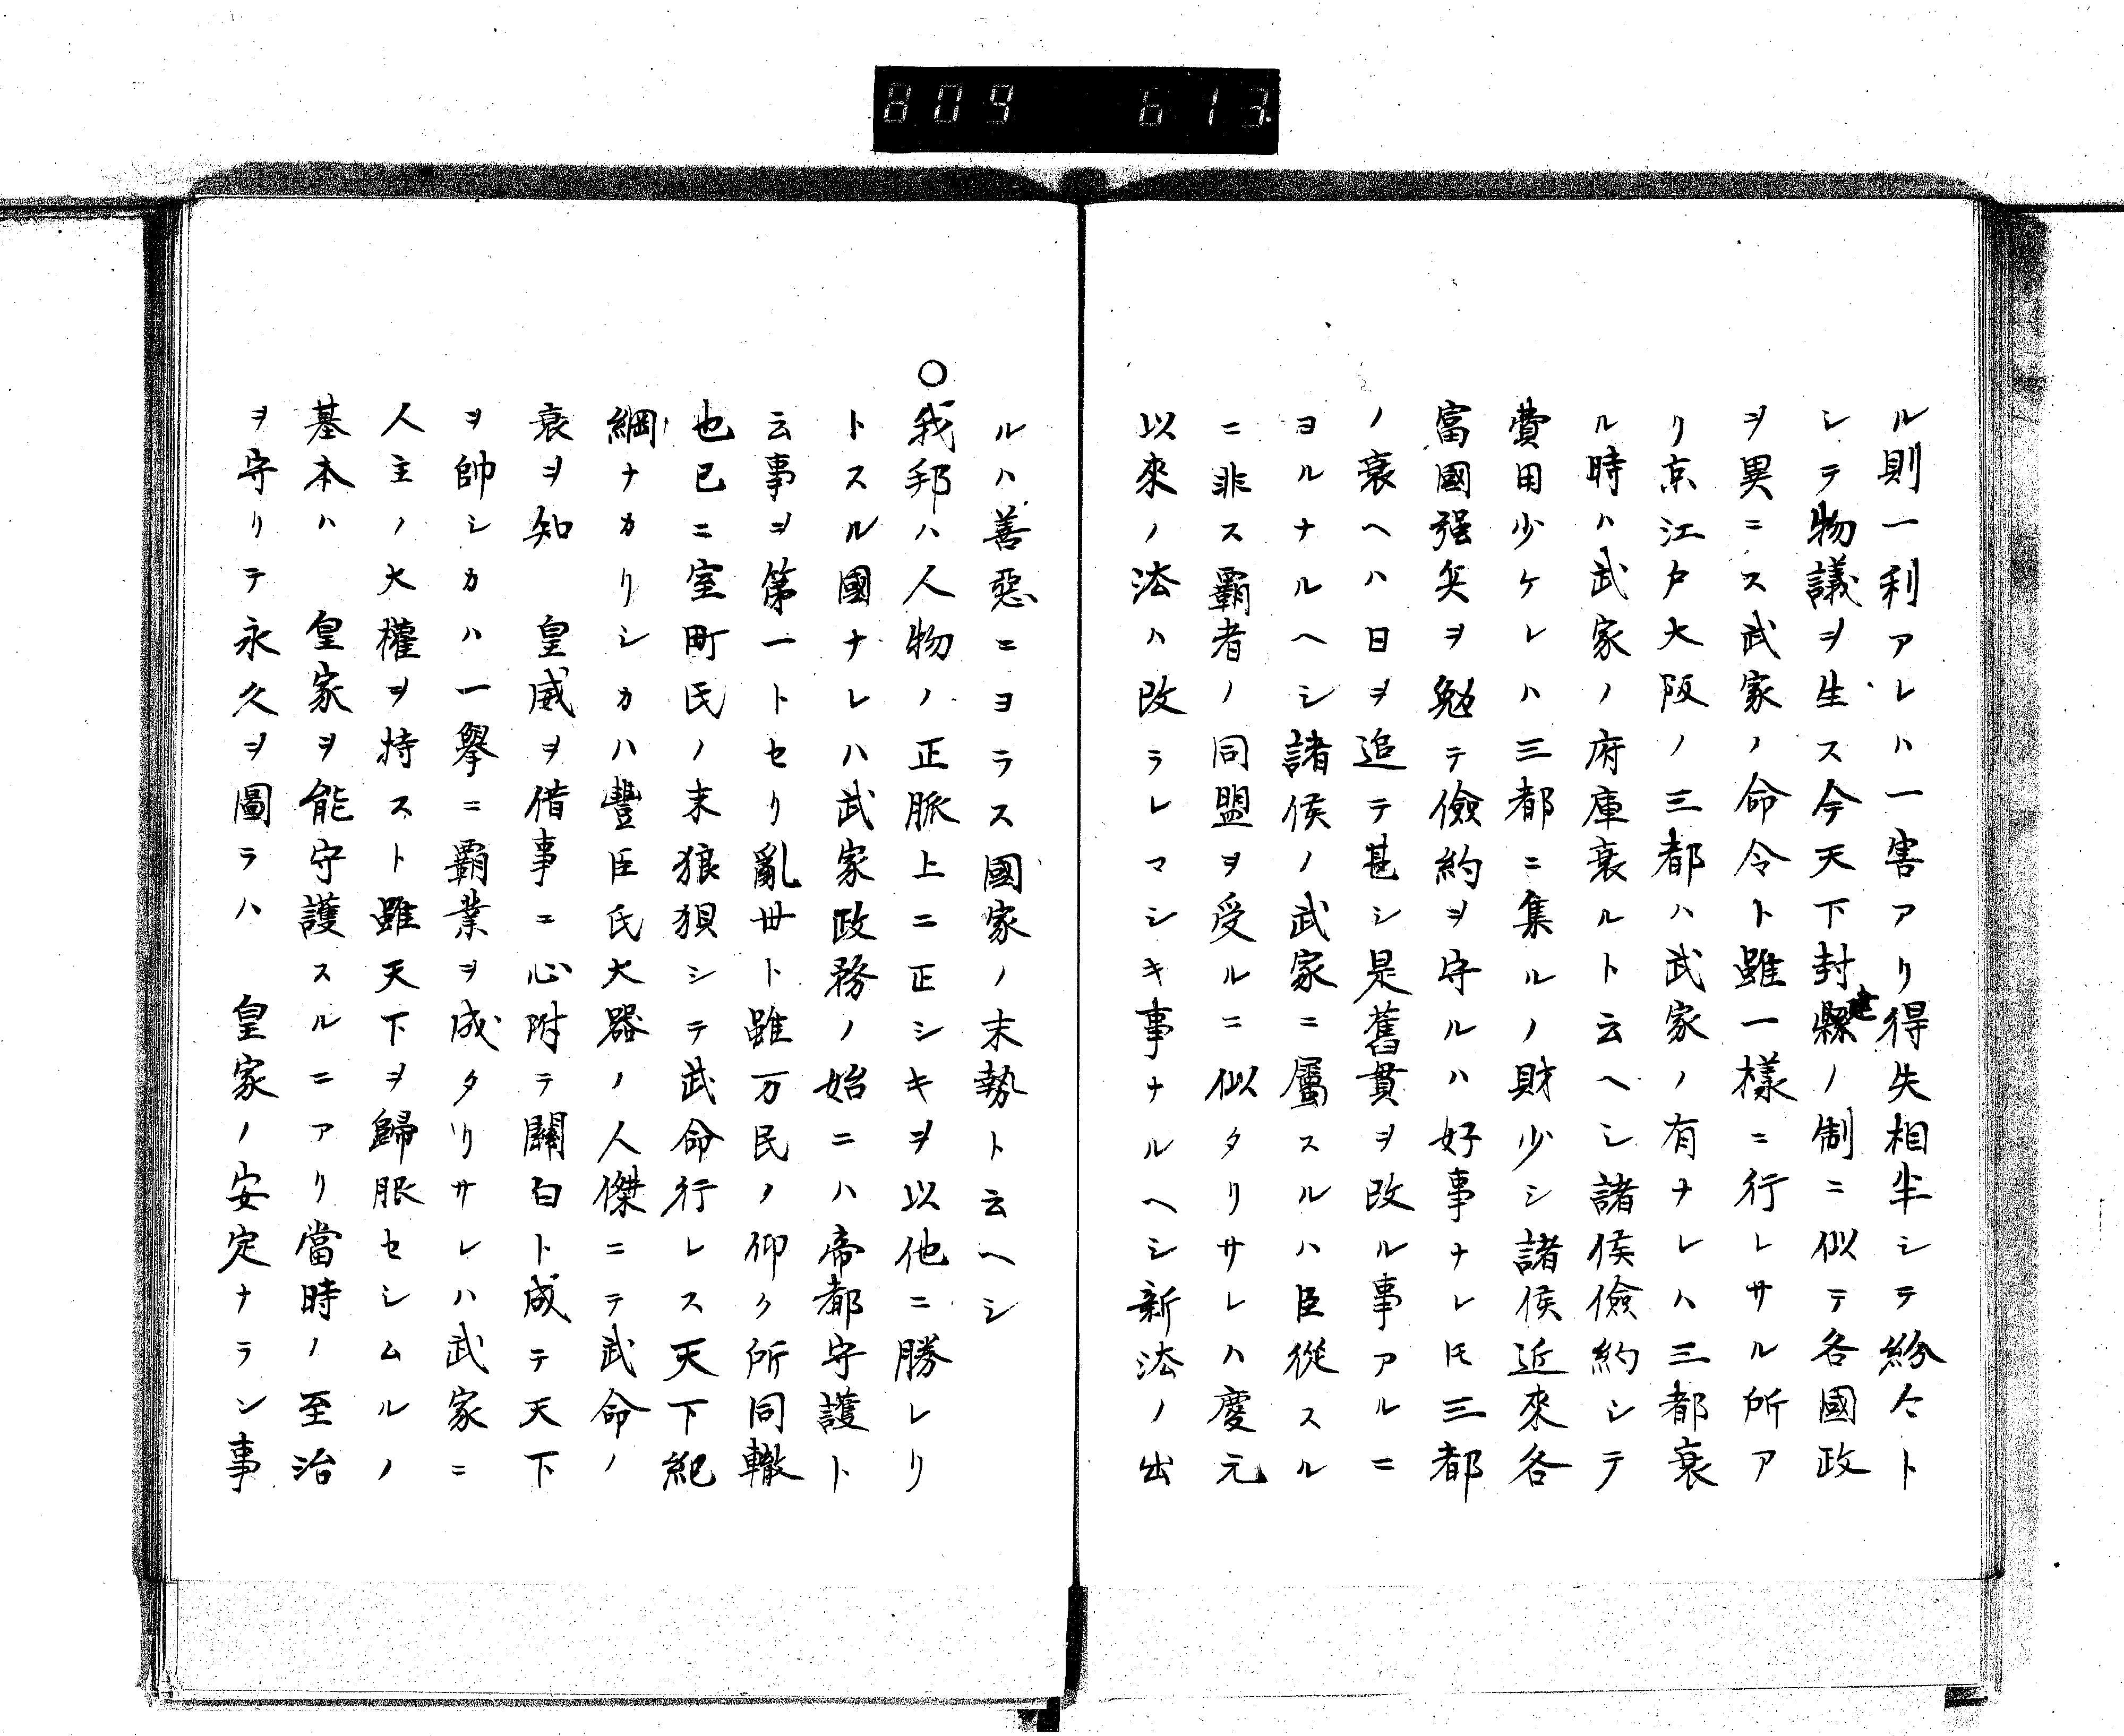 809 613
ル則一利アレハ一害アリ得失相半シテ紛々ト
シテ物議ヲ生ス今天下封縣建ノ制ニ似テ各國政
ヲ異ニス武家ノ命令ト雖一樣ニ行レサル所ア
リ京江戸大阪ノ三都ハ武家ノ有ナレハ三都衰
ル時ハ武家ノ府庫衰ルト云ヘシ諸侯儉約シテ
費用少ケレハ三都ニ集ルノ財少シ諸侯近來各
富國强兵ヲ勉テ儉約ヲ守ルハ好事ナレ𪜈三都
ノ衰ヘハ日ヲ追テ甚シ是舊貫ヲ改ル事アルニ
ヨルナルヘシ諸侯ノ武家ニ屬スルハ臣從スル
ニ非ス覇者ノ同盟ヲ受ルニ似タリサレハ慶元
以來ノ法ハ改ラレマシキ事ナルヘシ新法ノ出
ルハ善惡ニヨラス國家ノ末勢ト云ヘシ
○我邦ハ人物ノ正脈上ニ正シキヲ以他ニ勝レリ
トスル國ナレハ武家政務ノ始ニハ帝都守護ト
云事ヲ第一トセリ亂世ト雖万民ノ仰ク所同轍
也已ニ室町氏ノ末狼狽シテ武命行レス天下紀
綱ナカリシカハ豐臣氏大器ノ人傑ニテ武命ノ
衰ヲ知 皇威ヲ借事ニ心附テ關白ト成テ天下
ヲ帥シカハ一擧ニ覇業ヲ成タリサレハ武家ニ
人主ノ大權ヲ持スト雖天下ヲ歸服セシムルノ
基本ハ 皇家ヲ能守護スルニアリ當時ノ至治
ヲ守リテ永久ヲ圖ラハ 皇家ノ安定ナラン事